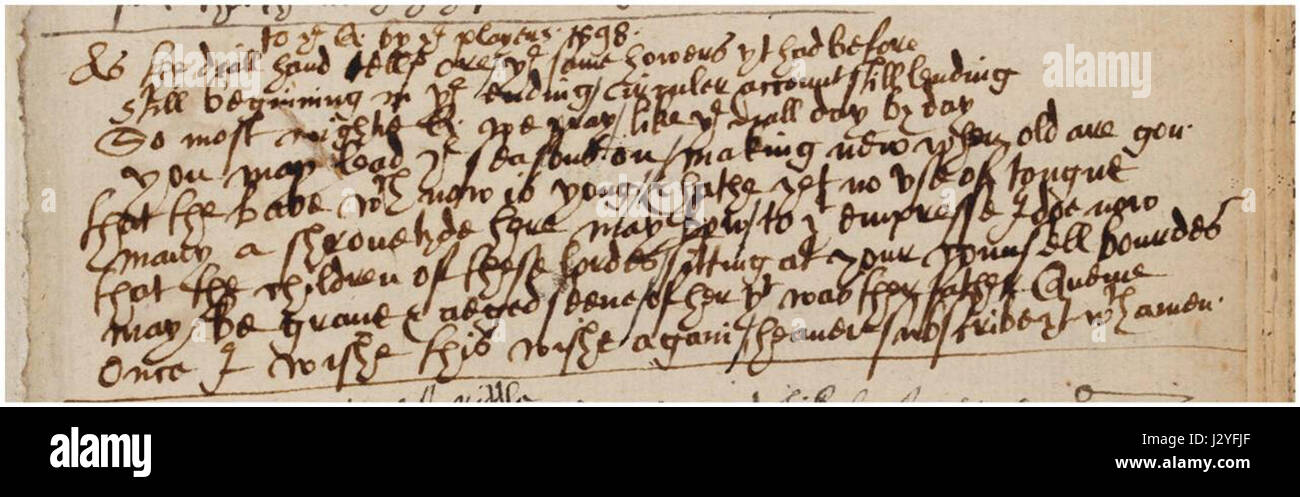 to ye Q. by ye players. 1598.
As the diall hand tells ore / ye same howers yt had before
still beginning in ye ending / circuler account still lending
So most mightie Q. we pray / like ye diall day by day
you may lead ye seasons on / making new when old are gon.
that the babe wch now is yong / & hathe yet no vse of tongue
many a shrovetyde here may bow / to yt empresse I doe now
that the children of these lordes / sitting at your counsell bourdes
may be grave & aeged seene / of her yt was ther fathers Quene
Once I wishe this wishe again / heauen subscribe yt wth amen.
riddle
alamy
www.alamy.com
J2YFJF